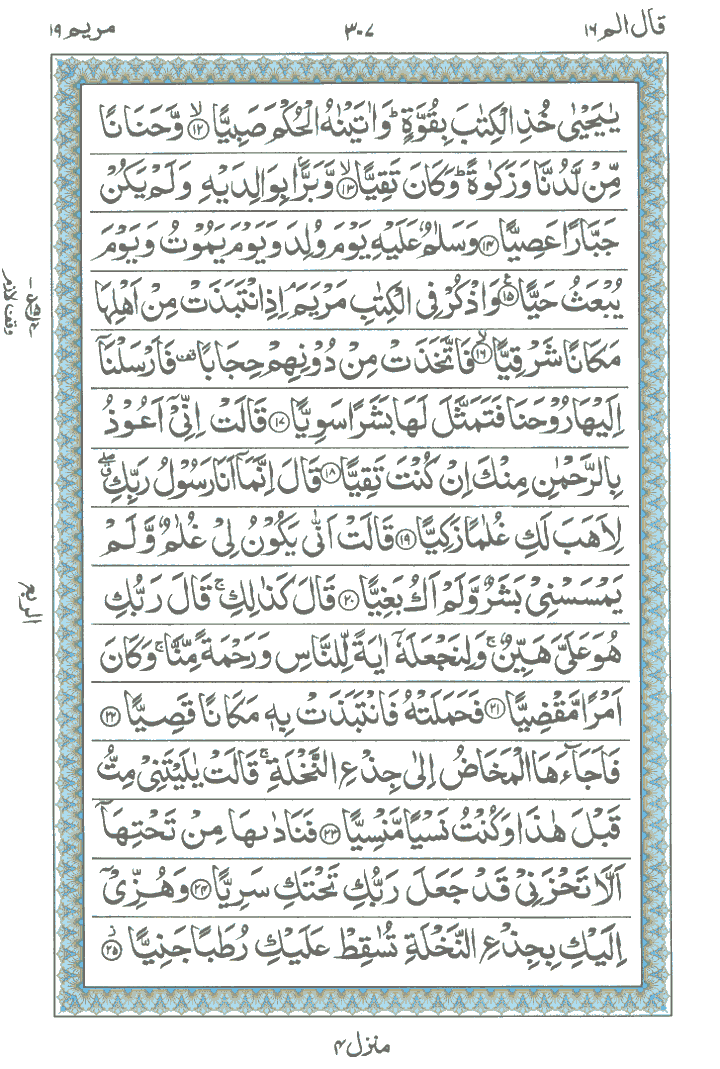 قال الم ١٦
٣٠٧
مريم ١٩
يٰيَحْيٰى خُذِ الْكِتٰبَ بِقُوَّةٍ ؕ وَاٰتَيْنٰهُ الْحُكْمَ صَبِيًّا ۙ﴿١٢﴾ وَّحَنَانًا
مِّنْ لَّدُنَّا وَزَكٰوةً ؕ وَكَانَ تَقِيًّا ۙ﴿١٣﴾ وَّبَرًّۢا بِوَالِدَيْهِ وَلَمْ يَكُنْ
جَبَّارًا عَصِيًّا ﴿١٤﴾ وَسَلٰمٌ عَلَيْهِ يَوْمَ وُلِدَ وَيَوْمَ يَمُوْتُ وَيَوْمَ
يُبْعَثُ حَيًّا ﴿١٥﴾ وَاذْكُرْ فِى الْكِتٰبِ مَرْيَمَ ۘ اِذِ انْتَبَذَتْ مِنْ اَهْلِهَا
مَكَانًا شَرْقِيًّا ۙ﴿١٦﴾ فَاتَّخَذَتْ مِنْ دُوْنِهِمْ حِجَابًا قف فَاَرْسَلْنَاۤ
اِلَيْهَا رُوْحَنَا فَتَمَثَّلَ لَهَا بَشَرًا سَوِيًّا ﴿١٧﴾ قَالَتْ اِنِّىْۤ اَعُوْذُ
بِالرَّحْمٰنِ مِنْكَ اِنْ كُنْتَ تَقِيًّا ﴿١٨﴾ قَالَ اِنَّمَاۤ اَنَا رَسُوْلُ رَبِّكِ ۖ
لِاَهَبَ لَكِ غُلٰمًا زَكِيًّا ﴿١٩﴾ قَالَتْ اَنّٰى يَكُوْنُ لِىْ غُلٰمٌ وَّلَمْ
يَمْسَسْنِىْ بَشَرٌ وَّلَمْ اَكُ بَغِيًّا ﴿٢٠﴾ قَالَ كَذٰلِكِ ۚ قَالَ رَبُّكِ
هُوَ عَلَىَّ هَيِّنٌ ۚ وَلِنَجْعَلَهٗۤ اٰيَةً لِّلنَّاسِ وَرَحْمَةً مِّنَّا ۚ وَكَانَ
اَمْرًا مَّقْضِيًّا ﴿٢١﴾ فَحَمَلَتْهُ فَانْتَبَذَتْ بِهٖ مَكَانًا قَصِيًّا ﴿٢٢﴾
فَاَجَآءَهَا الْمَخَاضُ اِلٰى جِذْعِ النَّخْلَةِ ۚ قَالَتْ يٰلَيْتَنِىْ مِتُّ
قَبْلَ هٰذَا وَكُنْتُ نَسْيًا مَّنْسِيًّا ﴿٢٣﴾ فَنَادٰىهَا مِنْ تَحْتِهَاۤ
اَلَّا تَحْزَنِىْ قَدْ جَعَلَ رَبُّكِ تَحْتَكِ سَرِيًّا ﴿٢٤﴾ وَهُزِّىْۤ
اِلَيْكِ بِجِذْعِ النَّخْلَةِ تُسٰقِطْ عَلَيْكِ رُطَبًا جَنِيًّا ۙ﴿٢٥﴾
وقف لازم
الربع
منزل ۴